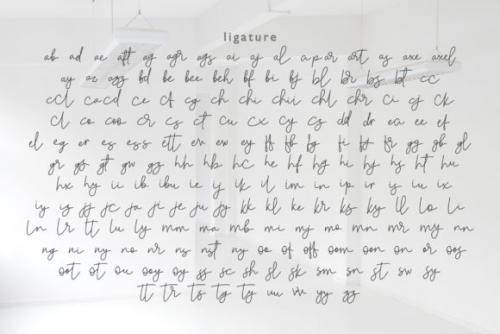 ligature
ab ad ae aft ag agr ags ai aj al a.p ar art as axe axel
ay az azz bd be bee beh bf bi bj bl br bs bt cc
ccl cacd ce cf cg ch chi chii chl chr ci cj ck
cl co coo cr cs ct cu cx cy cz dd dr ea ee ef
el eg er es ess ett ev ew ey ff fb fg fi fj fr gg gb gl
gr gs gt gw gz hh hb hc he hf hg hi hj hs ht hu
hx hy ii ib ibu ie ij ik il im in ip ir is iu ix
iy iz jj jc ja ji je ju jy kk kl ke kr ks ky ll lo li
ln lr tt lu ly mm ma mb mi mj mo mn mr my nn
ng ni nj no nr ns nst ny oo of off oom oon on or oos
oot ot ou ooy oy ss sc sh sl sk sm sn st sw sy
tt tr ts tg ty uu vv yy zz